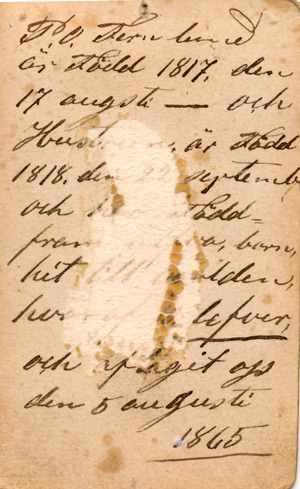 P O Fernlund
är Född 1817, den
17 augsti — och
Hustrun, är Född
1818, den 22 septemb
och Född=
fram barn,
hit till verlden,
lefver,
och aftagit oss
den 5 augusti
1865